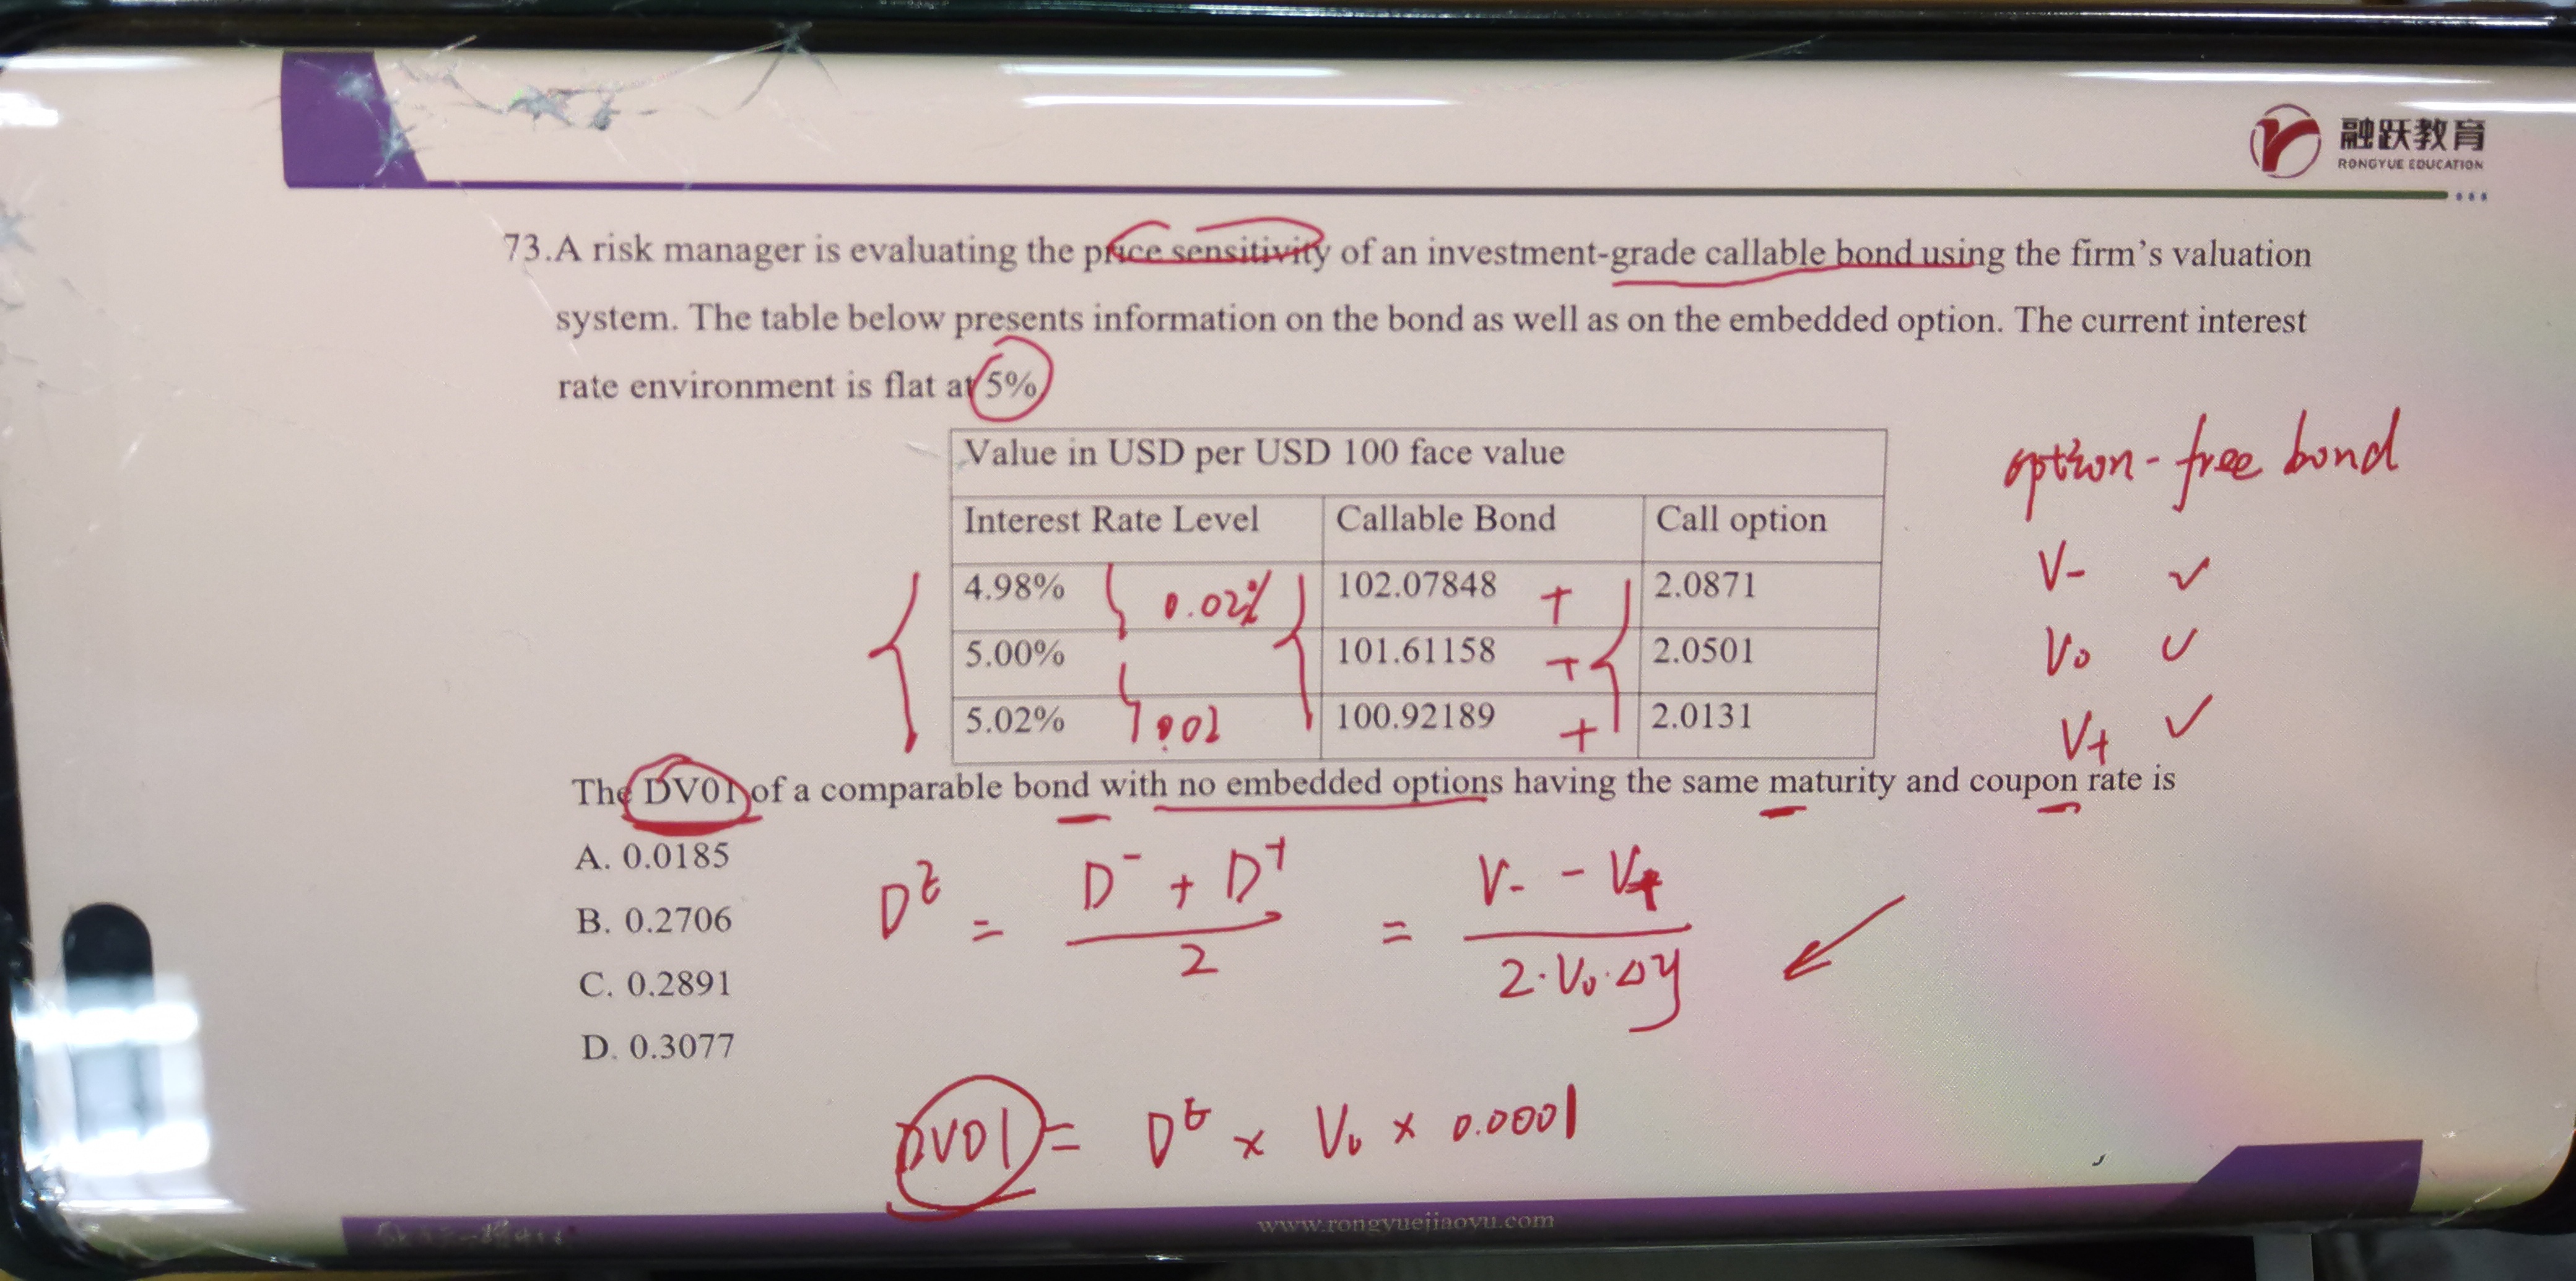 融跃教育
RONGYUE EDUCATION
73.A risk manager is evaluating the price sensitivity of an investment-grade callable bond using the firm's valuation
system. The table below presents information on the bond as well as on the embedded option. The current interest
rate environment is flat at 5%
option-free bond
Value in USD per USD 100 face value
Interest Rate Level Callable Bond Call option
4.98% 0.02% 102.07848 + 2.0871
V- ✓
5.00% 101.61158 + 2.0501
V0 ✓
5.02% 0.02 100.92189 + 2.0131
V+ ✓
The DV01 of a comparable bond with no embedded options having the same maturity and coupon rate is
A. 0.0185
B. 0.2706
C. 0.2891
D. 0.3077
D^E = (D^- + D^+) / 2 = (V- - V+) / (2·V0·Δy)
DV01 = D^E × V0 × 0.0001
www.rongyuejiaoyu.com